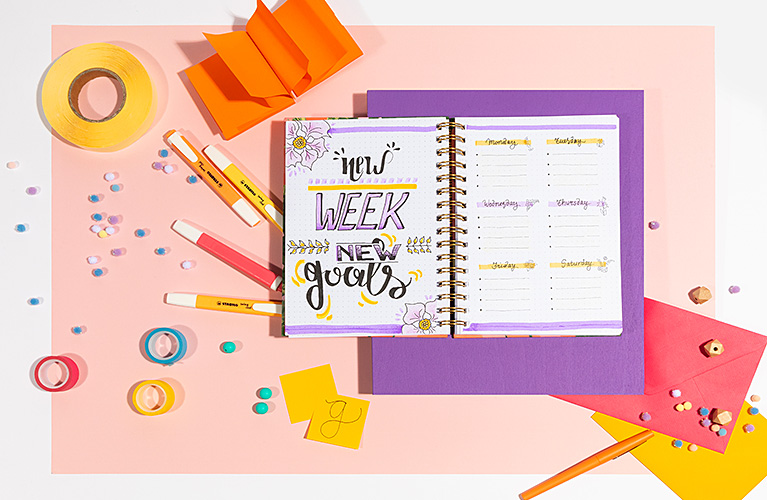 new
WEEK
NEW
goals
Monday
Tuesday
Wednesday
Thursday
Friday
Saturday
STABILO
STABILO
STABILO
g